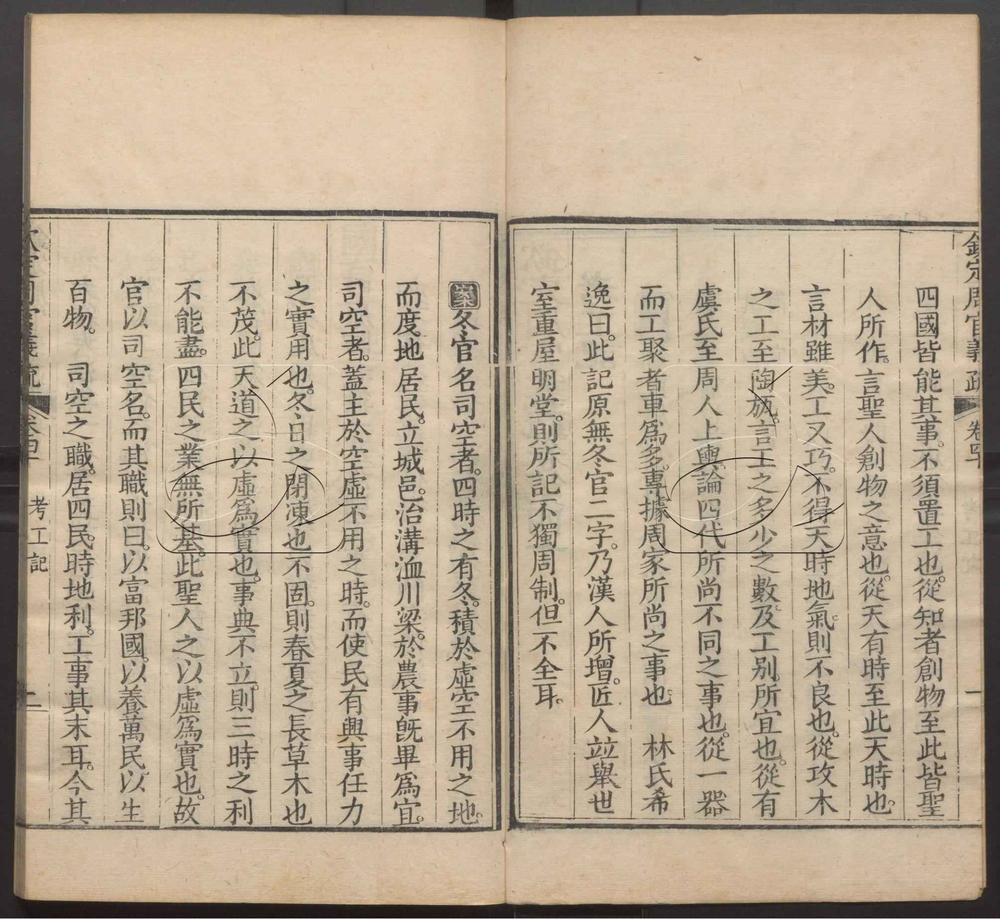 欽定周官義疏 卷四十
四國皆能其事。不須置工也。從知者創物至此皆聖
人所作。言聖人創物之意也。從天有時至此天時也。
言材雖美。工又巧。不得天時地氣。則不良也。從攻木
之工至陶瓬。言工之多少之數。及工別所宜也。從有
虞氏至周人上輿。論四代所尚不同之事也。從一器
而工聚者車爲多。專據周家所尚之事也 林氏希
逸曰。此記原無冬官二字。乃漢人所增。匠人竝舉世
室重屋明堂。則所記不獨周制。但不全耳。
案冬官名司空者。四時之有冬。積於虛空不用之地。
而度地居民。立城邑。治溝洫川梁。於農事旣畢爲宜。
司空者。蓋主於空虛不用之時。而使民有興事任力
之實用也。冬日之閉凍也不固。則春夏之長草木也
不茂。此天道之以虛爲實也。事典不立。則三時之利
不能盡。四民之業無所基。此聖人之以虛爲實也。故
官以司空名。而其職則曰。以富邦國。以養萬民。以生
百物。 司空之職。居四民。時地利。工事其末耳。今其
考工記 二